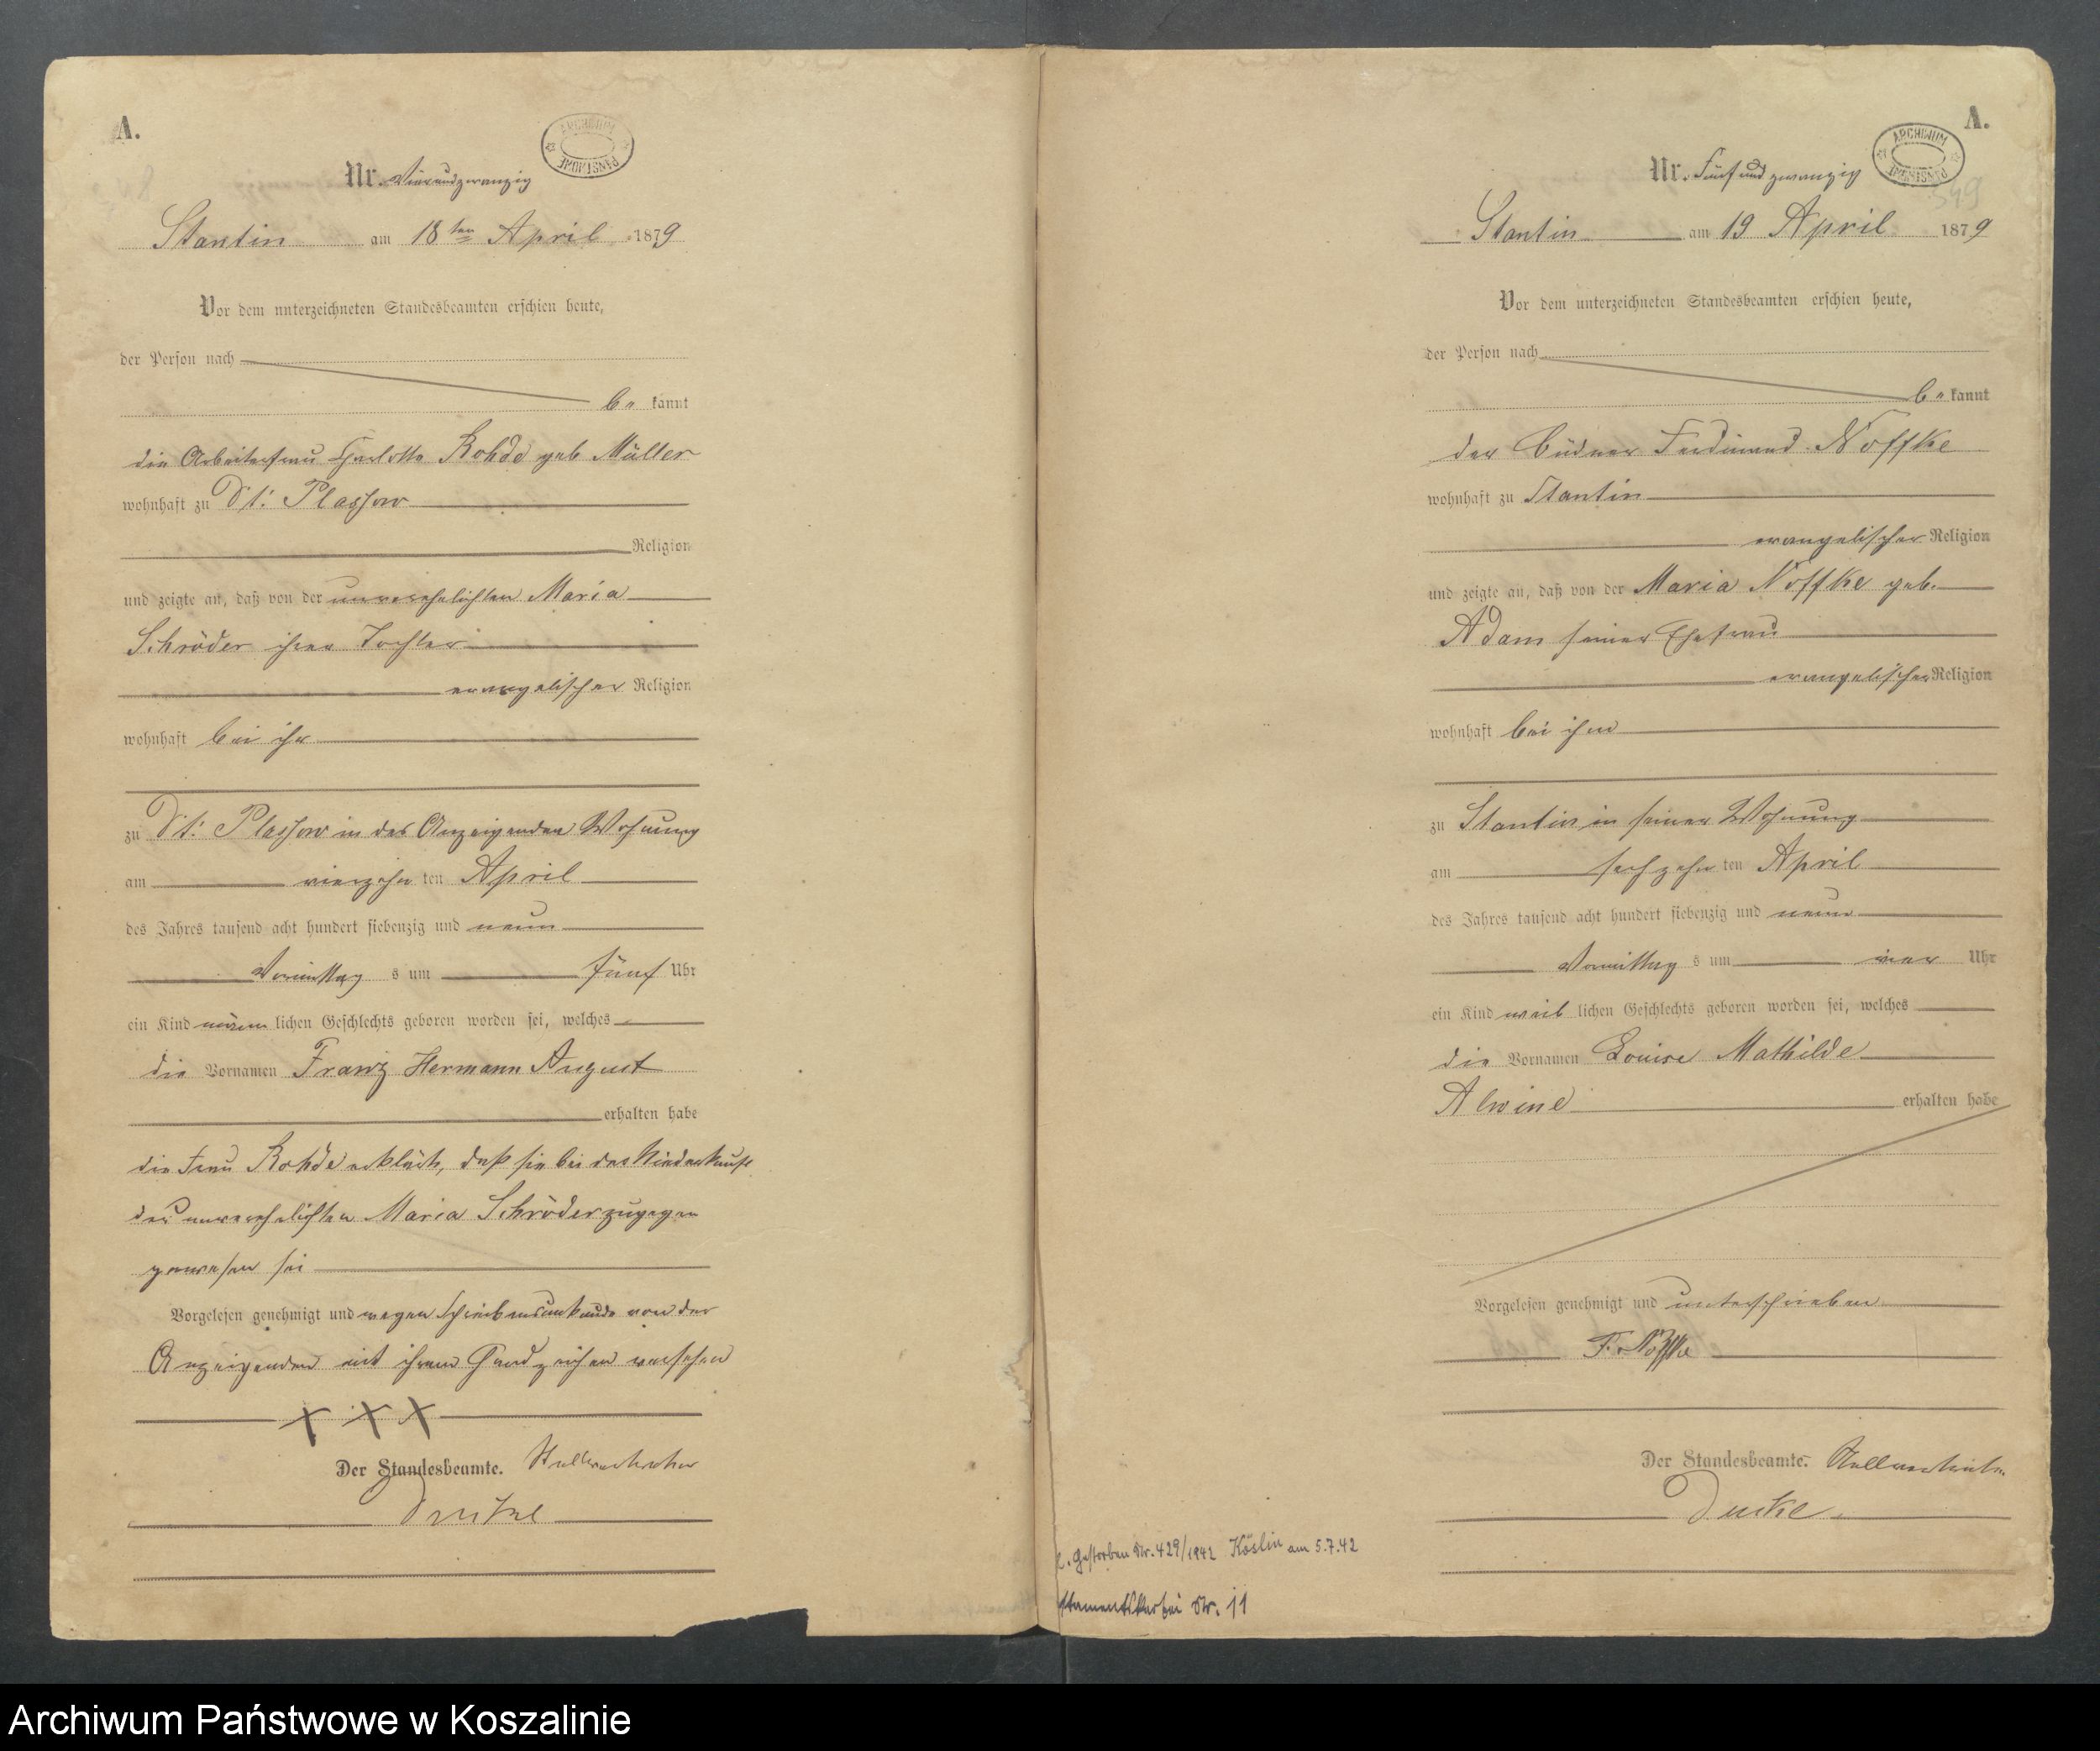 A.
ARCHIWUM PAŃSTWOWE
Nr. Vierundzwanzig
Stantin am 18ten April 1879
Vor dem unterzeichneten Standesbeamten erschien heute,
der Person nach
be kannt
die Arbeiterfrau Charlotte Rohde geb Müller
wohnhaft zu Dt: Plassow
Religion
und zeigte an, daß von der unverehelichten Maria
Schröder ihrer Tochter
evangelischer Religion
wohnhaft bei ihr
zu Dt: Plassow in der Anzeigenden Wohnung
am vierzehn ten April
des Jahres tausend acht hundert siebenzig und neun
Vormittag s um fünf Uhr
ein Kind männ lichen Geschlechts geboren worden sei, welches
die Vornamen Franz Hermann August
erhalten habe
die Frau Rohde erklärte, daß sie bei der Niederkunft
der unverehelichten Maria Schröder zugegen
gewesen sei
Vorgelesen genehmigt und wegen Schreibensunkunde von der
Anzeigenden mit ihrem Handzeichen versehen
X X X
Der Standesbeamte. Stellvertreter
A.
ARCHIWUM PAŃSTWOWE
349
Nr. Fünfundzwanzig
Stantin am 19 April 1879
Vor dem unterzeichneten Standesbeamten erschien heute,
der Person nach
be kannt
der Büdner Ferdinand Noffke
wohnhaft zu Stantin
evangelischer Religion
und zeigte an, daß von der Maria Noffke geb.
Adam seiner Ehefrau
evangelischer Religion
wohnhaft bei ihm
zu Stantin in seiner Wohnung
am sechzehn ten April
des Jahres tausend acht hundert siebenzig und neun
Vormittag s um vier Uhr
ein Kind weib lichen Geschlechts geboren worden sei, welches
die Vornamen Louise Mathilde
Alwine erhalten habe
Vorgelesen genehmigt und unterschrieben
F. Noffke
Der Standesbeamte. Stellvertreter.
Gestorben Nr. 429/1942 Köslin am 5.7.42
Nr. 11
Archiwum Państwowe w Koszalinie